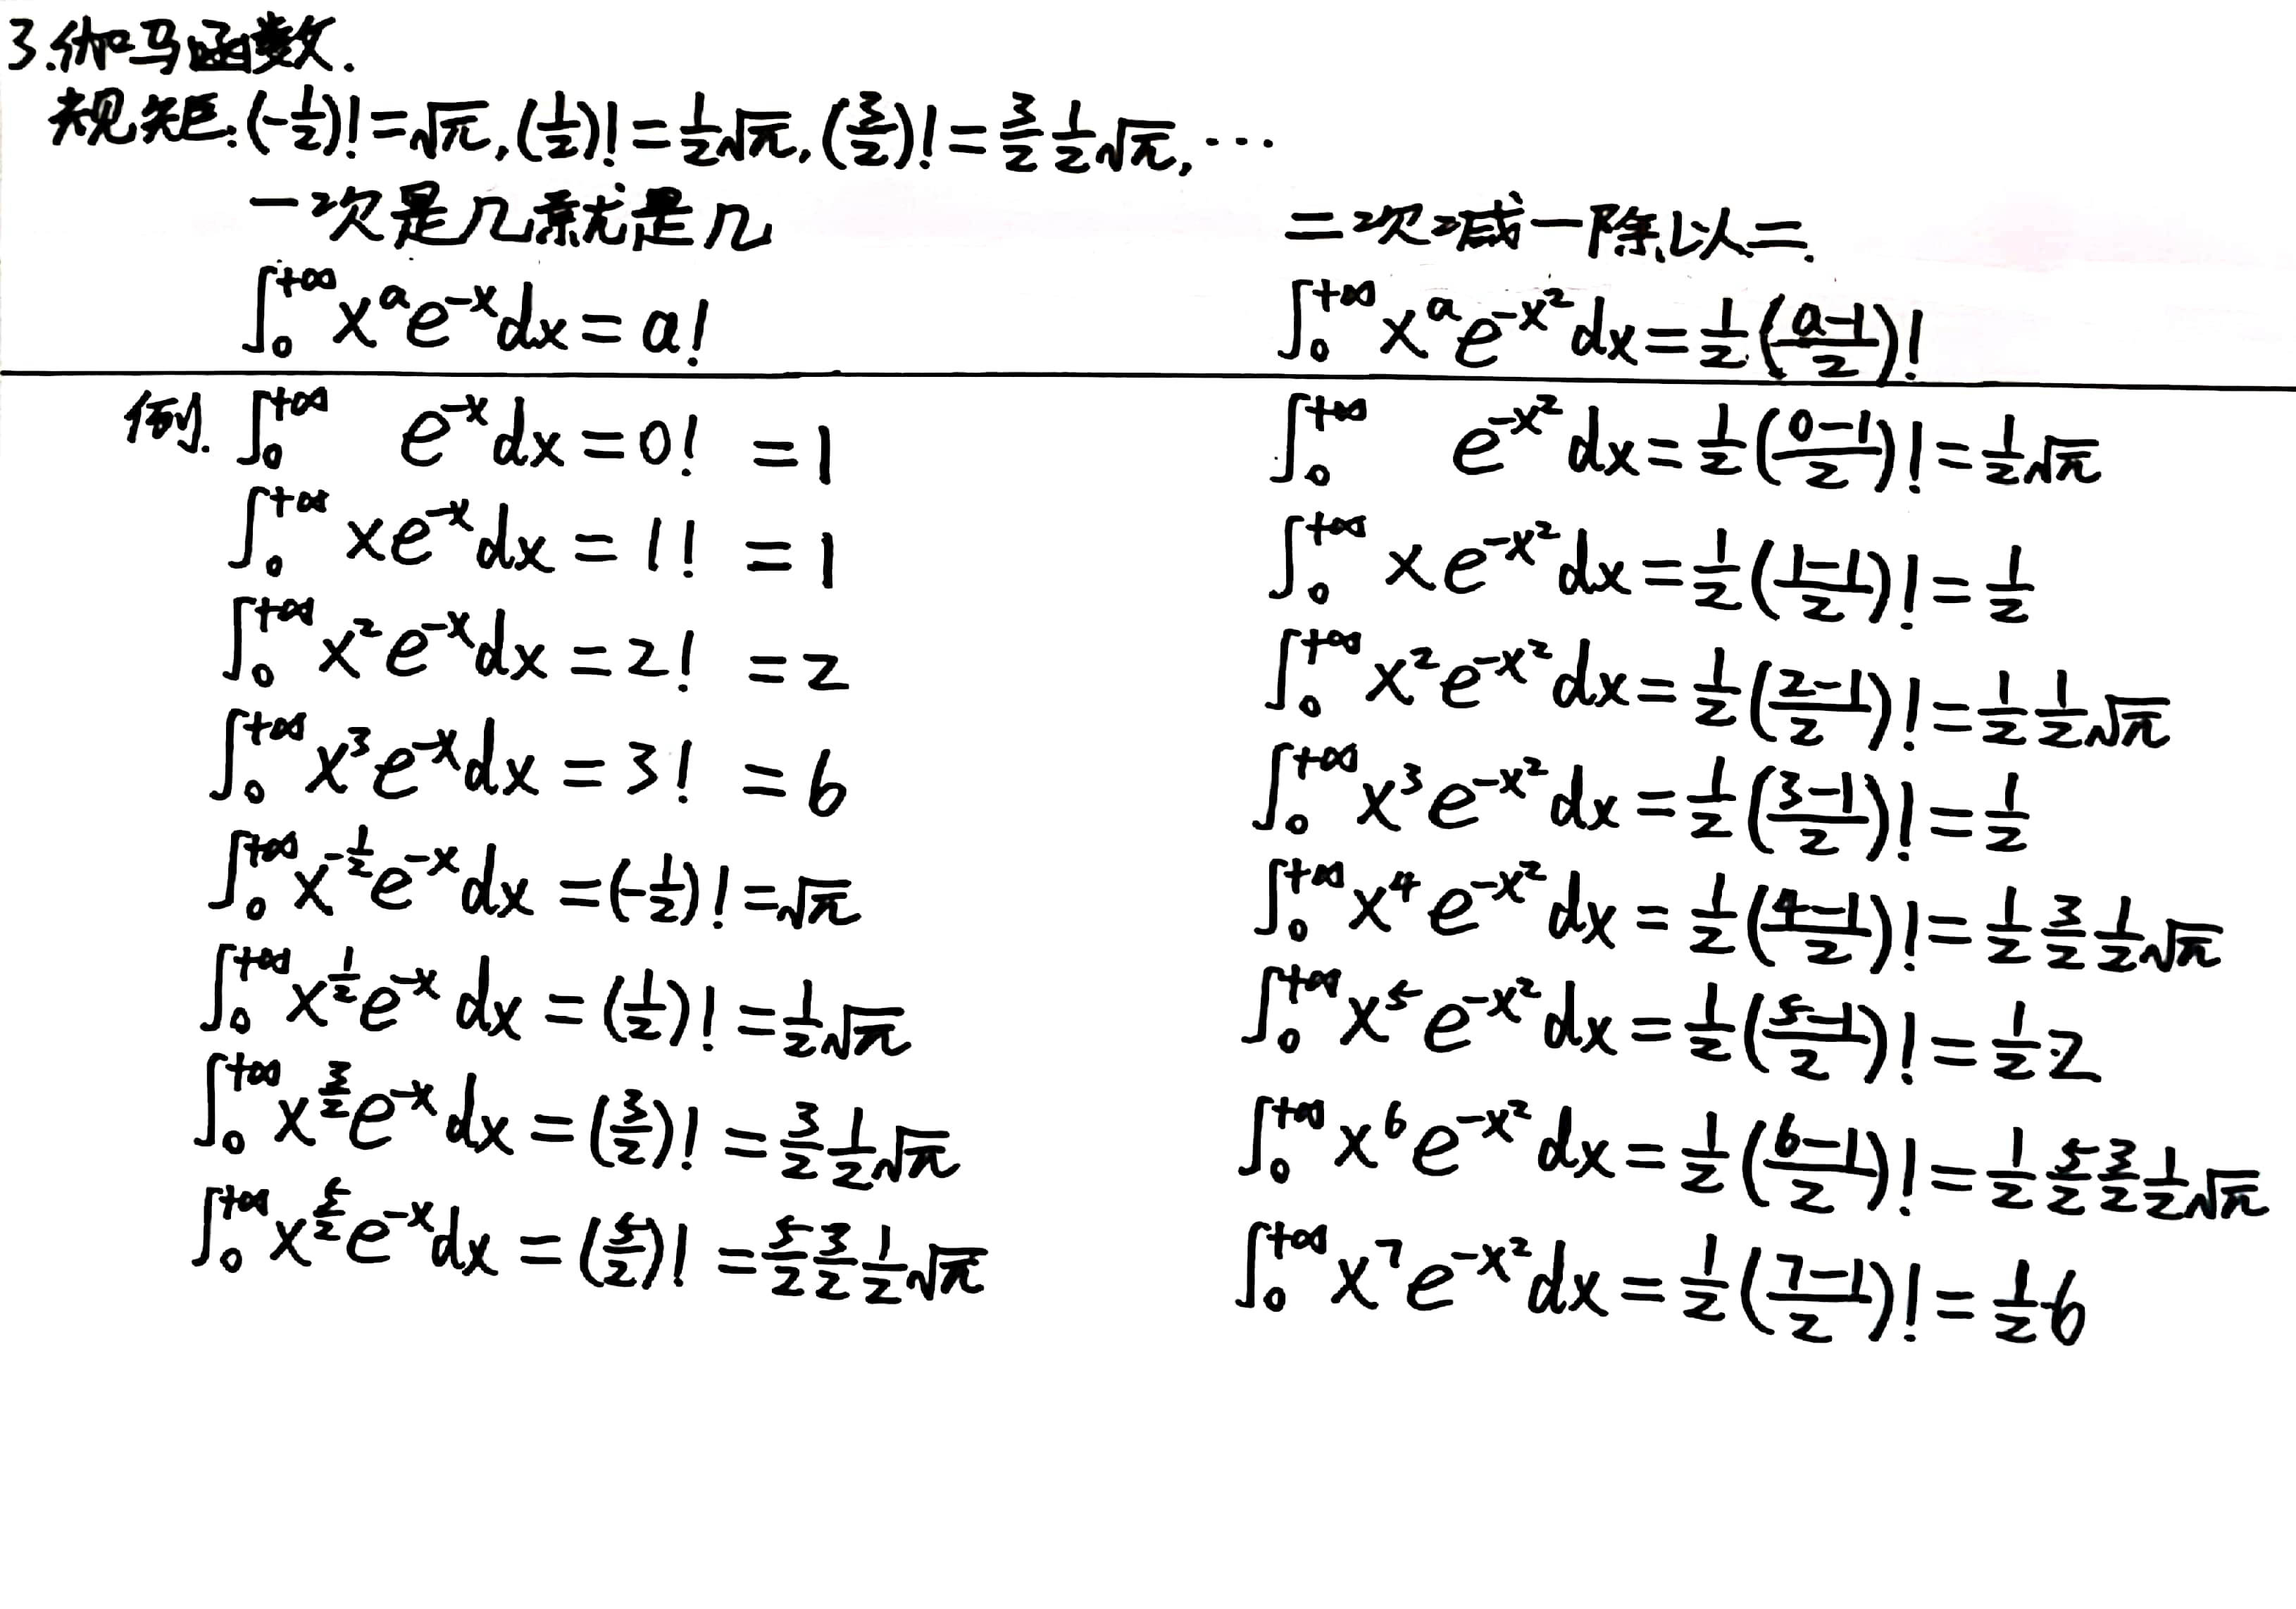 3.伽马函数.
规矩:(-1/2)!=√π,(1/2)!=1/2√π,(3/2)!=3/2 1/2√π,⋯
一次是几就是几
∫₀^{+∞} x^a e^{-x} dx = a!
二次减一除以二.
∫₀^{+∞} x^a e^{-x²} dx = 1/2 ((a-1)/2)!
例. ∫₀^{+∞} e^{-x} dx = 0! = 1
∫₀^{+∞} x e^{-x} dx = 1! = 1
∫₀^{+∞} x² e^{-x} dx = 2! = 2
∫₀^{+∞} x³ e^{-x} dx = 3! = 6
∫₀^{+∞} x^{-1/2} e^{-x} dx = (-1/2)! = √π
∫₀^{+∞} x^{1/2} e^{-x} dx = (1/2)! = 1/2 √π
∫₀^{+∞} x^{3/2} e^{-x} dx = (3/2)! = 3/2 1/2 √π
∫₀^{+∞} x^{5/2} e^{-x} dx = (5/2)! = 5/2 3/2 1/2 √π
∫₀^{+∞} e^{-x²} dx = 1/2 ((0-1)/2)! = 1/2 √π
∫₀^{+∞} x e^{-x²} dx = 1/2 ((1-1)/2)! = 1/2
∫₀^{+∞} x² e^{-x²} dx = 1/2 ((2-1)/2)! = 1/2 1/2 √π
∫₀^{+∞} x³ e^{-x²} dx = 1/2 ((3-1)/2)! = 1/2
∫₀^{+∞} x⁴ e^{-x²} dx = 1/2 ((4-1)/2)! = 1/2 3/2 1/2 √π
∫₀^{+∞} x⁵ e^{-x²} dx = 1/2 ((5-1)/2)! = 1/2·2
∫₀^{+∞} x⁶ e^{-x²} dx = 1/2 ((6-1)/2)! = 1/2 5/2 3/2 1/2 √π
∫₀^{+∞} x⁷ e^{-x²} dx = 1/2 ((7-1)/2)! = 1/2·6